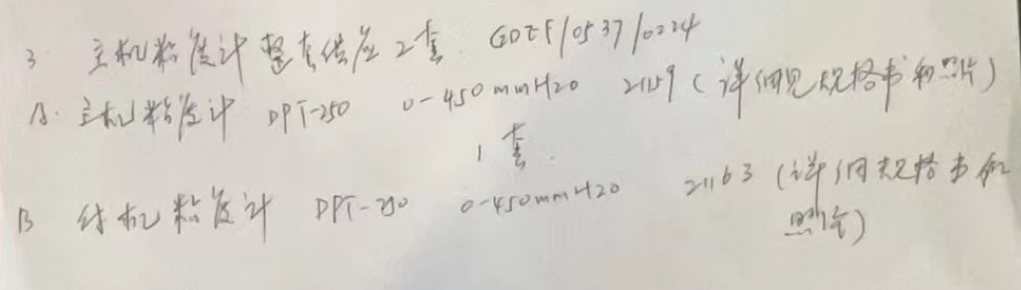 3 主机粘度计 整套供应 2套 GDEF/0537/0224
A. 主机粘度计 DPT-250 0-450mmH20 21159 (详细见规格书和照片)
1套.
B 粘度计 DPT-250 0-450mmH20 21163 (详细规格书和
照片)